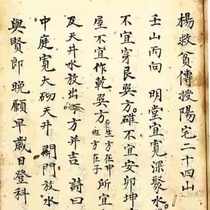 楊救貧傳授陽宅二十四山
壬山丙向 明堂宜寬深聚水
不宜穿艮吳方碓不宜安卯坤
屋不宜作乾吳方 所宜
及天井水放出 方并吉 詩曰
中庭寬大砌天井 開門放水
與賢郎晚願早歲日登科